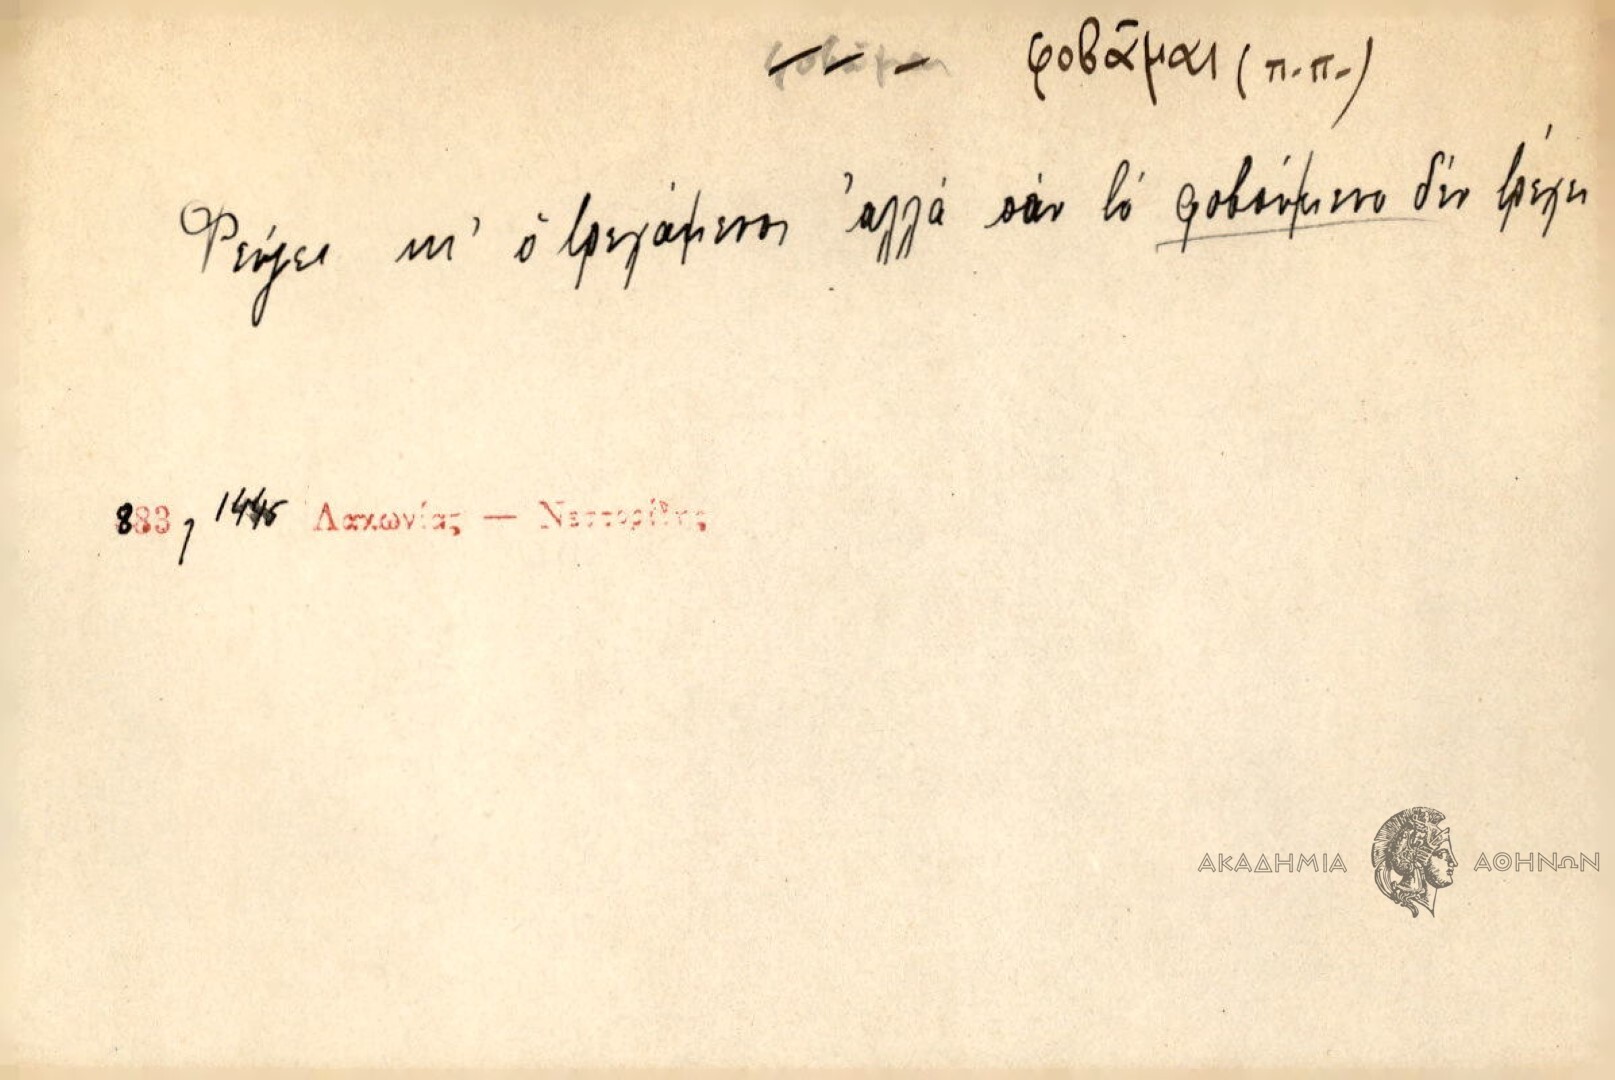 φοβᾶμαι (π.π.)
Φεύγει κι' ὁ τρεχάμενος ἀλλά σάν τό φοβούμενο δέν τρέχει
883, 1445 Λακωνίας — Νεστορίδης
ΑΚΑΔΗΜΙΑ ΑΘΗΝΩΝ